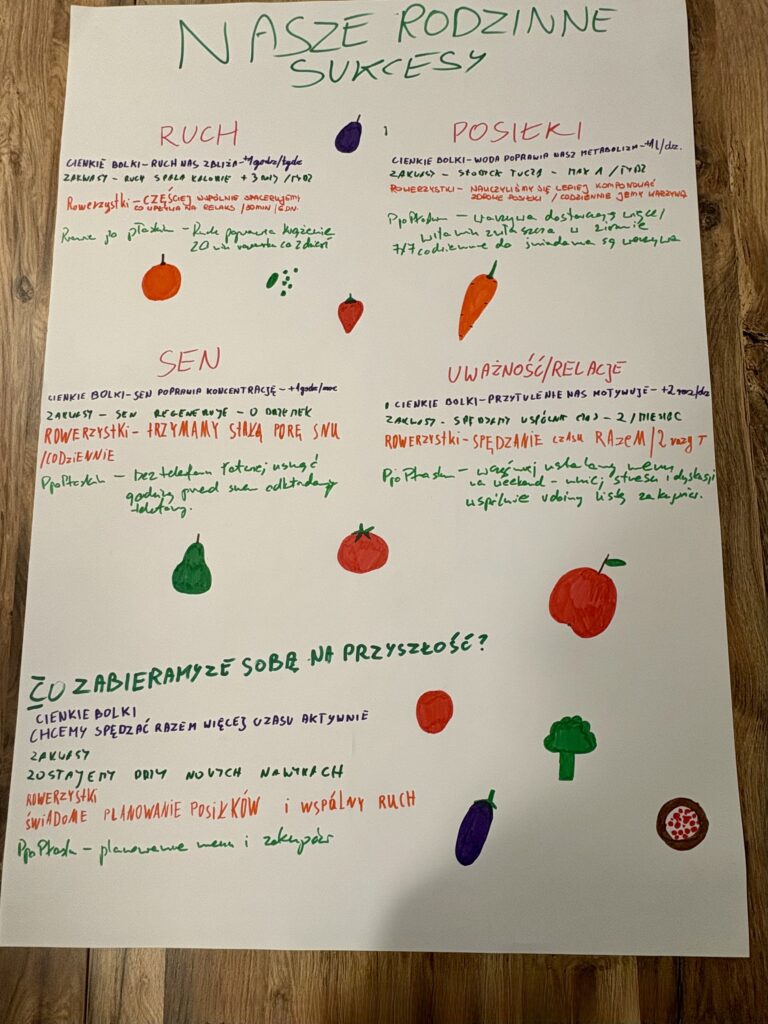 NASZE RODZINNE
SUKCESY
RUCH
CIENKIE BOLKI-RUCH NAS ZBLIŻA-+1godz/tydz
ZAKWASY - RUCH SPALA KALORIE + 3 DNI /TYDZ
Rowerzystki-CZĘŚCIEJ WSPÓLNIE SPACERUJEMY
CO WPŁYWA NA RELAKS /30MIN/
po ptasku - Ruch poprawia krążenie
20 min co 2 dzień
POSIŁKI
CIENKIE BOLKI-WODA POPRAWIA NASZ METABOLIZM-+1L/dz.
ZAKWASY - SŁODYCZE TUCZĄ - MAX 1 /TYDZ
ROWERZYSTKI- NAUCZYLIŚMY SIĘ LEPIEJ KOMPONOWAĆ
ZDROWE POSIŁKI /CODZIENNIE JEMY WARZYWA
- warzywa dostarczają więcej
witamin zwłaszcza w zimie
7/7 codziennie do śniadania są warzywa
SEN
CIENKIE BOLKI-SEN POPRAWIA KONCENTRACJĘ-+1godz/noc
ZAKWASY - SEN REGENERUJE - 0 DRZEMEK
ROWERZYSTKI- TRZYMAMY STAŁĄ PORĘ SNU
/CODZIENNIE
- bez telefonu łatwiej usnąć
godzinę przed snem odkładamy
telefony.
UWAŻNOŚĆ/RELACJE
CIENKIE BOLKI-PRZYTULENIE NAS MOTYWUJE-+2 razy/dz
ZAKWASY - SPĘDZAMY WSPÓLNIE CZAS - 2 /MIESIĄC
ROWERZYSTKI-SPĘDZANIE CZASU RAZEM/2 razy T
- ustalamy menu
na weekend - mniej stresu i dyskusji
wspólnie robimy listę zakupów.
CO ZABIERAMY ZE SOBĄ NA PRZYSZŁOŚĆ?
CIENKIE BOLKI
CHCEMY SPĘDZAĆ RAZEM WIĘCEJ CZASU AKTYWNIE
ZAKWASY
ZOSTAJEMY PRZY NOWYCH NAWYKACH
ROWERZYSTKI
ŚWIADOME PLANOWANIE POSIŁKÓW i WSPÓLNY RUCH
- planowanie menu i zakupów